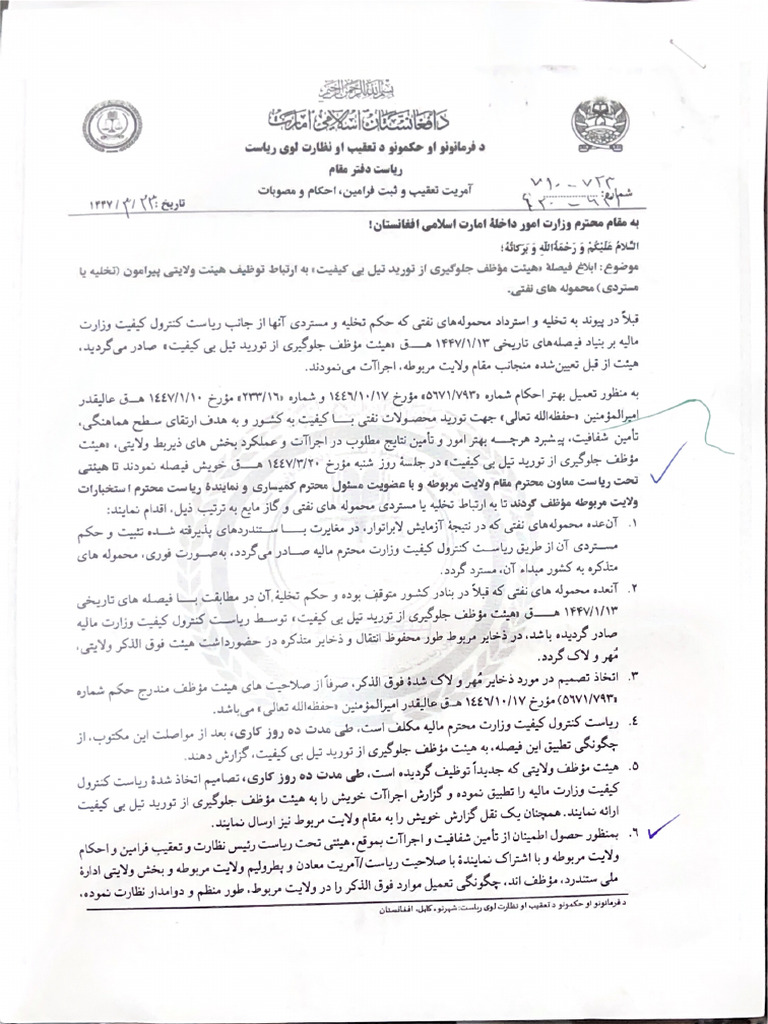 بسم الله الرحمن الرحیم
د افغانستان اسلامي امارت
د فرمانونو او حکمونو د تعقیب او نظارت لوی ریاست
ریاست دفتر مقام
آمریت تعقیب و ثبت فرامین، احکام و مصوبات
شماره:
تاریخ: ۲۳/ ۳/ ۱۴۴۷
به مقام محترم وزارت امور داخلۀ امارت اسلامی افغانستان!
السَّلامُ عَلَیْکُمْ وَ رَحْمَةُ اللهِ وَ بَرَکاتُهُ؛
موضوع: ابلاغ فیصلۀ «هیئت مؤظف جلوگیری از تورید تیل بی کیفیت» به ارتباط توظیف هیئت ولایتی پیرامون (تخلیه یا
مستردی) محموله های نفتی.
قبلاً در پیوند به تخلیه و استرداد محموله‌های نفتی که حکم تخلیه و مستردی آنها از جانب ریاست کنترول کیفیت وزارت
مالیه بر بنیاد فیصله‌های تاریخی ۱۴۴۷/۱/۱۳ هـ ق «هیئت مؤظف جلوگیری از تورید تیل بی کیفیت» صادر می‌گردید،
هیئت از قبل تعیین‌شده منجانب مقام ولایت مربوطه، اجراآت می‌نمودند.
به منظور تعمیل بهتر احکام شماره «۵۶۷۱/۷۹۳» مؤرخ ۱۴۴۶/۱۰/۱۷ و شماره «۲۳۳/۱۶» مؤرخ ۱۴۴۷/۱/۱۰ هـ ق عالیقدر
امیرالمؤمنین «حفظه‌الله تعالی» جهت تورید محصولات نفتی بـا کیفیت به کشور و به هدف ارتقای سطح هماهنگی،
تأمین شفافیت، پیشبرد هرچـه بهتر امور و تأمین نتایج مطلوب در اجراآت و عملکرد بخش های ذیربط ولایتی، «هیئت
مؤظف جلوگیری از تورید تیل بی کیفیت» در جلسۀ روز شنبه مؤرخ ۱۴۴۷/۳/۲۰ هـ ق خویش فیصله نمودند تا هیئتی
تحت ریاست معاون محترم مقام ولایت مربوطه و با عضویت مسئول محترم کمیساری و نمایندۀ ریاست محترم استخبارات
ولایت مربوطه مؤظف گردند تا به ارتباط تخلیه یا مستردی محموله های نفتی و گاز مایع به ترتیب ذیل، اقدام نمایند:
۱. آن‌عده محموله‌های نفتی که در نتیجۀ آزمایش لابراتوار، در مغایرت بـا ستندردهای پذیرفته شده تثبیت و حکم
مستردی آن از طریق ریاست کنترول کیفیت وزارت محترم مالیه صادر می‌گردد، به‌صورت فوری، محموله های
متذکره به کشور مبداء آن، مسترد گردد.
۲. آنعده محموله های نفتی که قبلاً در بنادر کشور متوقف بوده و حکم تخلیۀ آن در مطابقت بـا فیصله های تاریخی
۱۴۴۷/۱/۱۳ هـ ق «هیئت مؤظف جلوگیری از تورید تیل بی کیفیت» توسط ریاست کنترول کیفیت وزارت مالیه
صادر گردیده باشد، در ذخایر مربوط طور محفوظ انتقال و ذخایر متذکره در حضورداشت هیئت فوق الذکر ولایتی،
مُهر و لاک گردد.
۳. اتخاذ تصمیم در مورد ذخایر مُهر و لاک شدۀ فوق الذکر، صرفاً از صلاحیت های هیئت مؤظف مندرج حکم شماره
«۵۶۷۱/۷۹۳» مؤرخ ۱۴۴۶/۱۰/۱۷ هـ ق عالیقدر امیرالمؤمنین «حفظه‌الله تعالی» می‌باشد.
۴. ریاست کنترول کیفیت وزارت محترم مالیه مکلف است، طی مدت ده روز کاری، بعد از مواصلت این مکتوب، از
چگونگی تطبیق این فیصله، به هیئت مؤظف جلوگیری از تورید تیل بی کیفیت، گزارش دهند.
۵. هیئت مؤظف ولایتی که جدیداً توظیف گردیده است، طی مدت ده روز کاری، تصامیم اتخاذ شدۀ ریاست کنترول
کیفیت وزارت مالیه را تطبیق نموده و گزارش اجراآت خویش را به هیئت مؤظف جلوگیری از تورید تیل بی کیفیت
ارائه نمایند. همچنان یک نقل گزارش خویش را به مقام ولایت مربوط نیز ارسال نمایند.
۶. بمنظور حصول اطمینان از تأمین شفافیت و اجراآت بموقع، هیئتی تحت ریاست رئیس نظارت و تعقیب فرامین و احکام
ولایت مربوطه و با اشتراک نمایندۀ با صلاحیت ریاست/آمریت معادن و پطرولیم ولایت مربوطه و بخش ولایتی ادارۀ
ملی ستندرد، مؤظف اند، چگونگی تعمیل موارد فوق الذکر را در ولایت مربوط، طور منظم و دوامدار نظارت نموده،
د فرمانونو او حکمونو د تعقیب او نظارت لوی ریاست، شهرنو، کابل، افغانستان